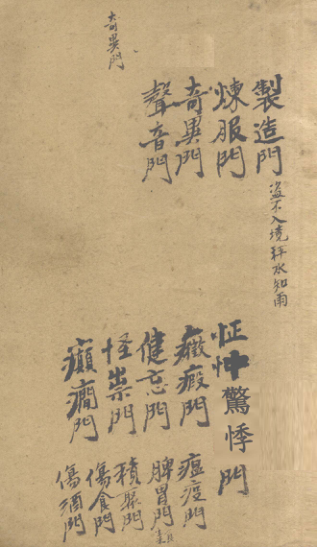 奇異門
製造門
盜不入境秤水知雨
煉服門
奇異門
聲音門
怔忡驚悸門
癥瘕門
健忘門
怪祟門
癲癇門
瘟疫門
脾胃門
積聚門
傷食門
傷酒門